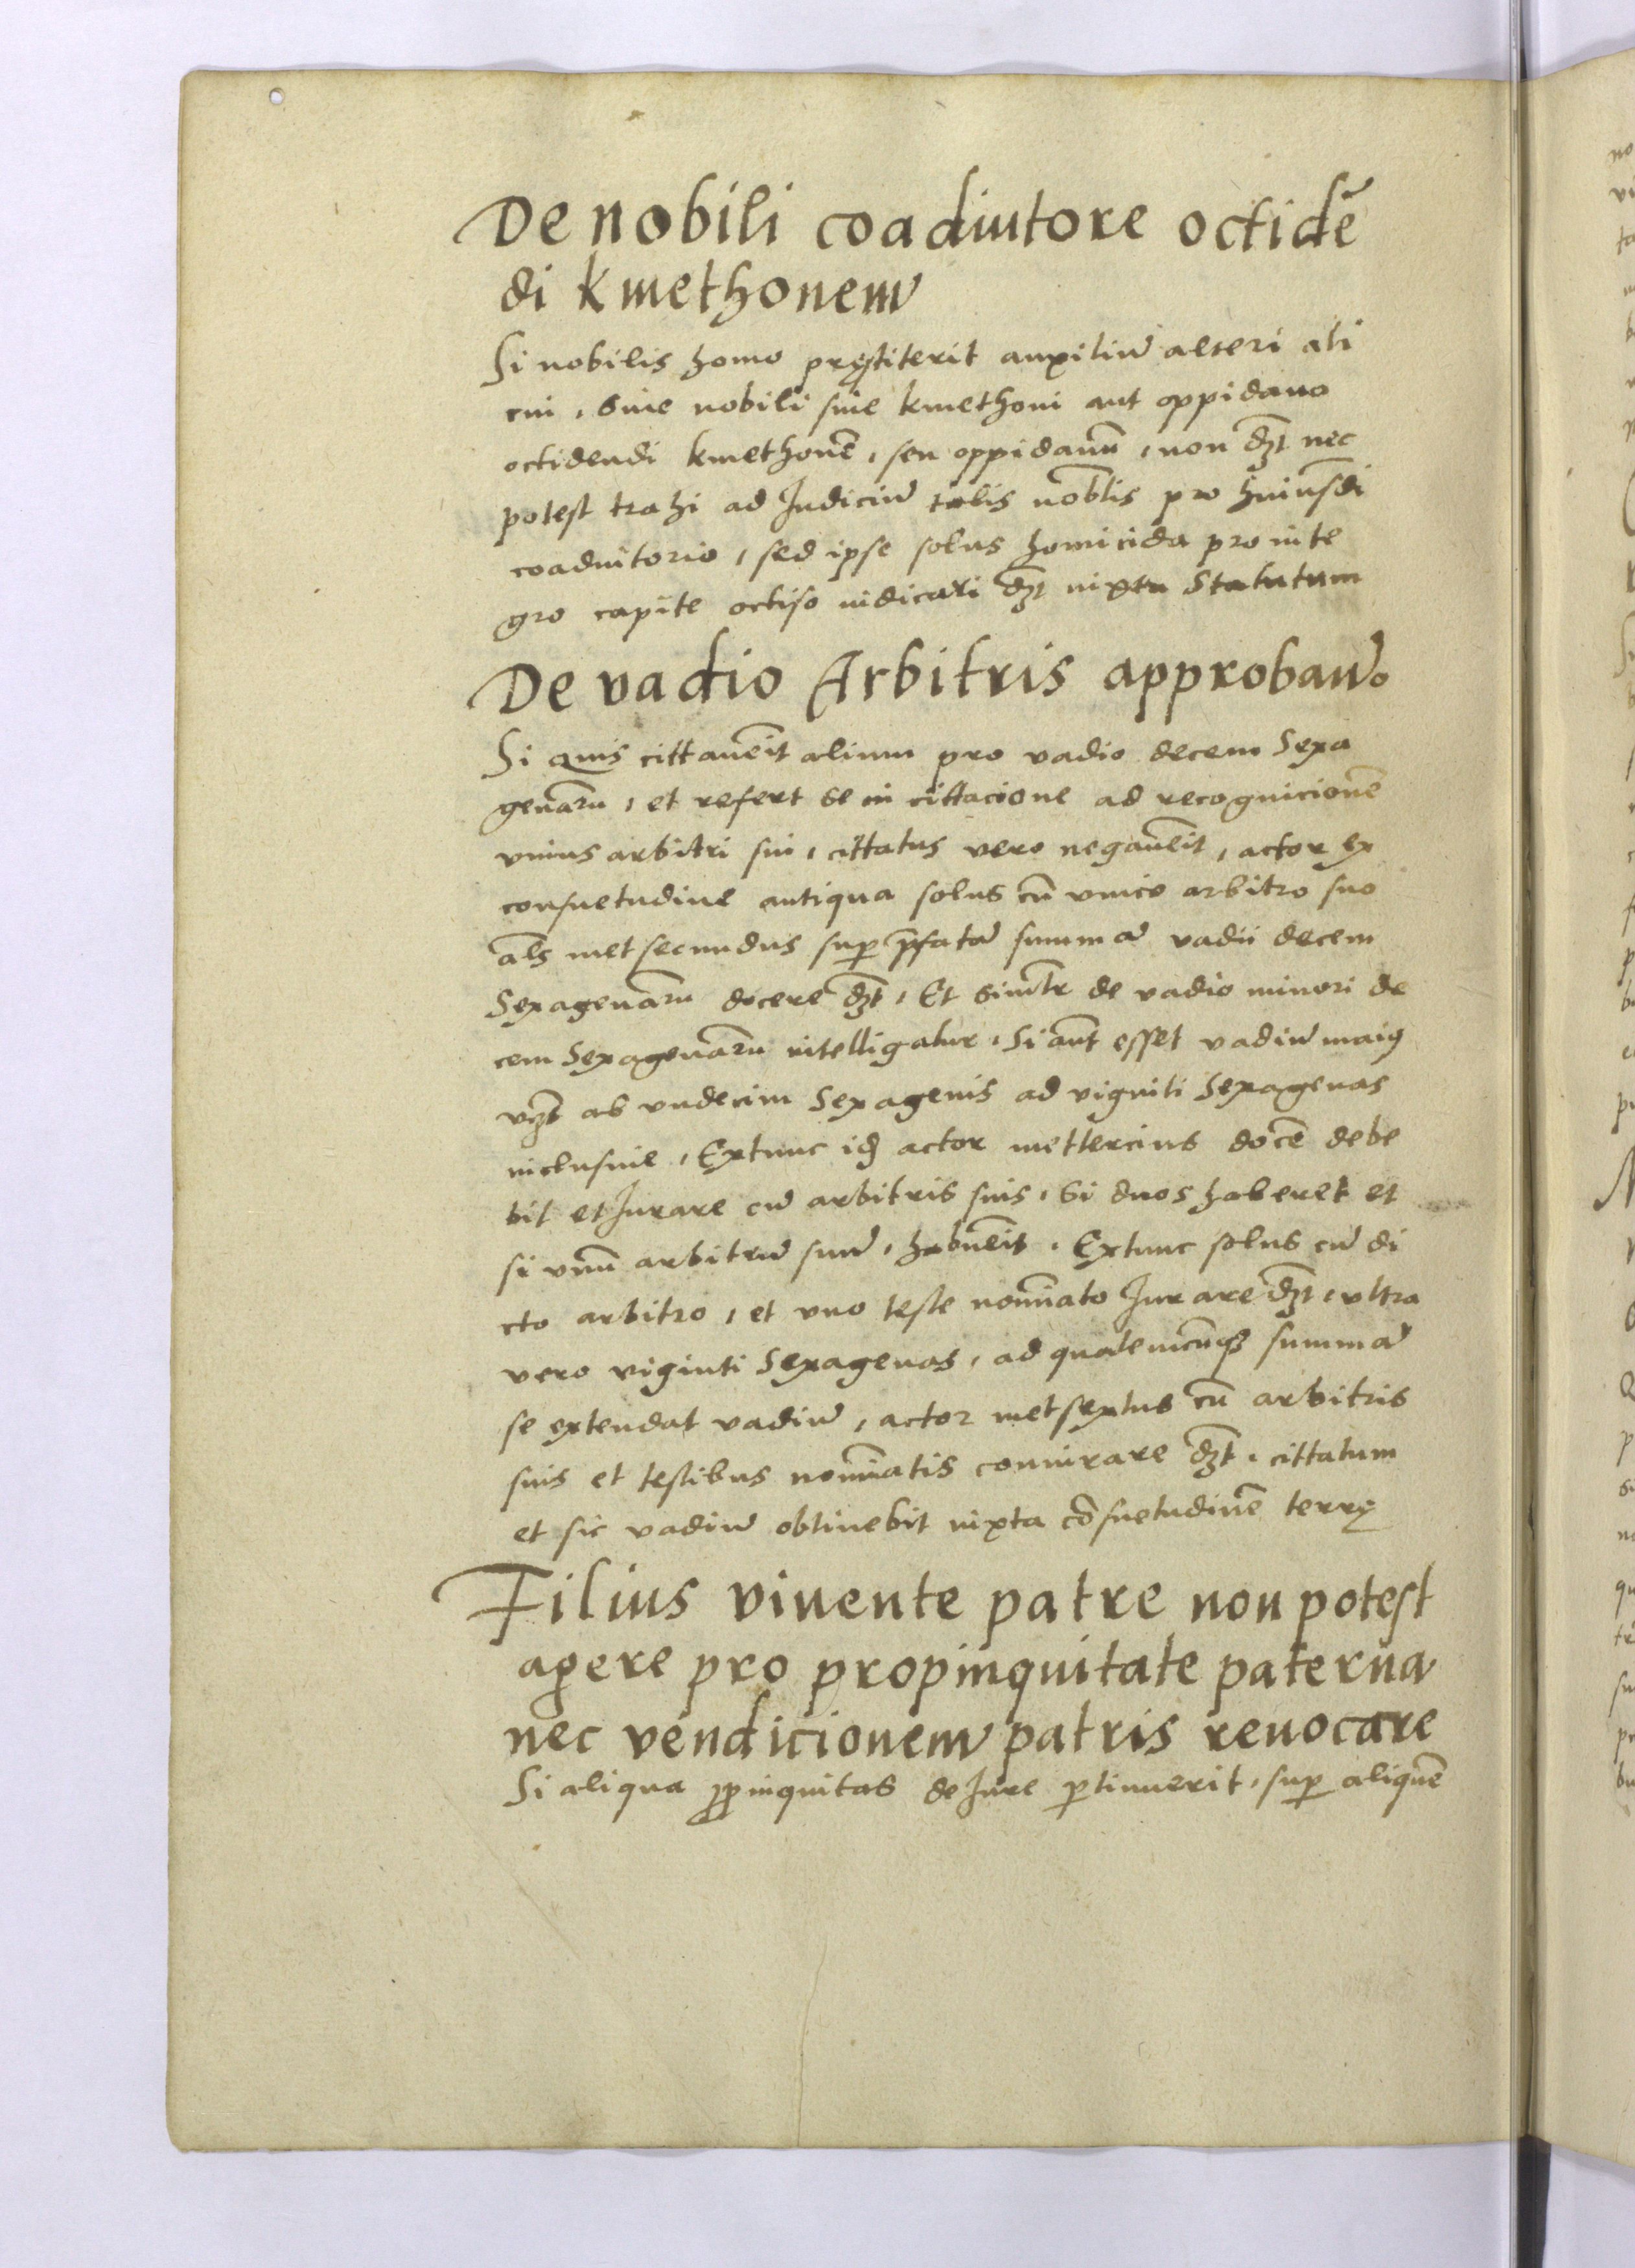 De nobili coadiutore occidē
di kmethonem
Si nobilis homo pręstiterit auxiliū alteri ali
cui, siue nobili siue kmethoni aut oppidano
occidendi kmethonē, seu oppidanū, non dꝫt nec
potest trahi ad Iudiciū talis nobłis pro huiusdi
coadiutorio, sed ipse solus homicida pro inte
gro capite occiso iudicari dꝫt iuxta Statutum
De vadio Arbitris approbanđo
Si quis cittaueīt alium pro vadio decem Sexa
genarū, et refert se in cittacione ad recognicionē
vnius arbitri sui, cittatus vero negaueīt, actor ex
consuetudine antiqua solus cū vnico arbitro suo
als metsecundus sup p̄fatā summā vadii decem
Sexagenarū docere dꝫt, Et similtr de vadio minori de
cem Sexagenarū intelligatur, Si aūt esset vadiū maiꝰ
vꝫt ab vndecim Sexagenis ad viginti Sexagenas
inclusiue, Extunc idē actor mettercius docē debe
bit et Iurare cū arbitris suis, Si duos haberet et
si vnū arbitrū suū, habueīt, Extunc solus cū di
cto arbitro, et vno teste nominato Iurare dꝫt, vltra
vero viginti Sexagenas, ad qualemcūqꝫ summā
se extendat vadiū, actor metsextus cū arbitris
suis et testibus nominatis coniurare dꝫt, cittatum
et sic vadiū obtinebit iuxta cōsuetudinē terrę
Filius viuente patre non potest
agere pro propinquitate paterna
nec vendicionem patris reuocare
Si aliqua ꝓpinquitas de Iure ꝑtinuerit, suꝑ aliquē